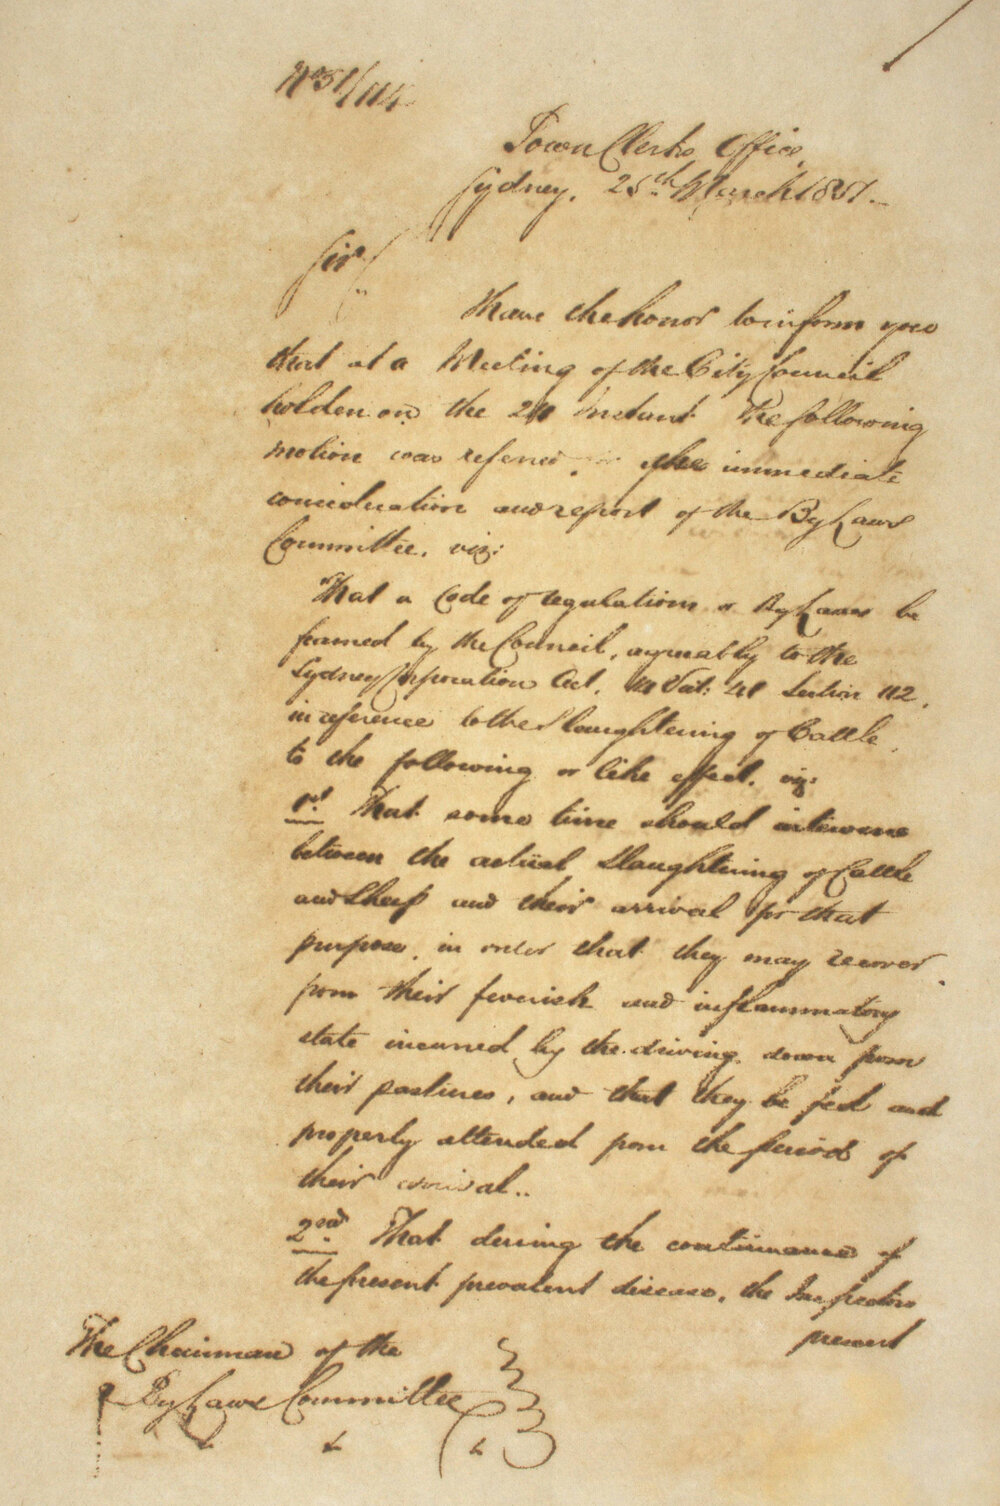 No 51/114
Town Clerks Office,
Sydney, 25th March 1851.
Sir
I have the honor to inform you
that at a Meeting of the City Council
holden on the 24 Instant the following
motion was referred to the immediate
consideration and report of the By Laws
Committee. viz:
That a Code of regulations or By Laws be
framed by the Council, agreeably to the
Sydney Corporation Act, 14 Vict: 41 Section 112,
in reference to the Slaughtering of Cattle,
to the following or like effect. viz:
1st. That some time should intervene
between the actual Slaughtering of Cattle
and Sheep and their arrival for that
purpose, in order that they may recover
from their feverish and inflammatory
state incurred by the driving down from
their pastures, and that they be fed and
properly attended from the period of
their arrival..
2nd. That during the continuance of
the present prevalent disease, the Inspectors
prevent
The Chairman of the
By Laws Committee